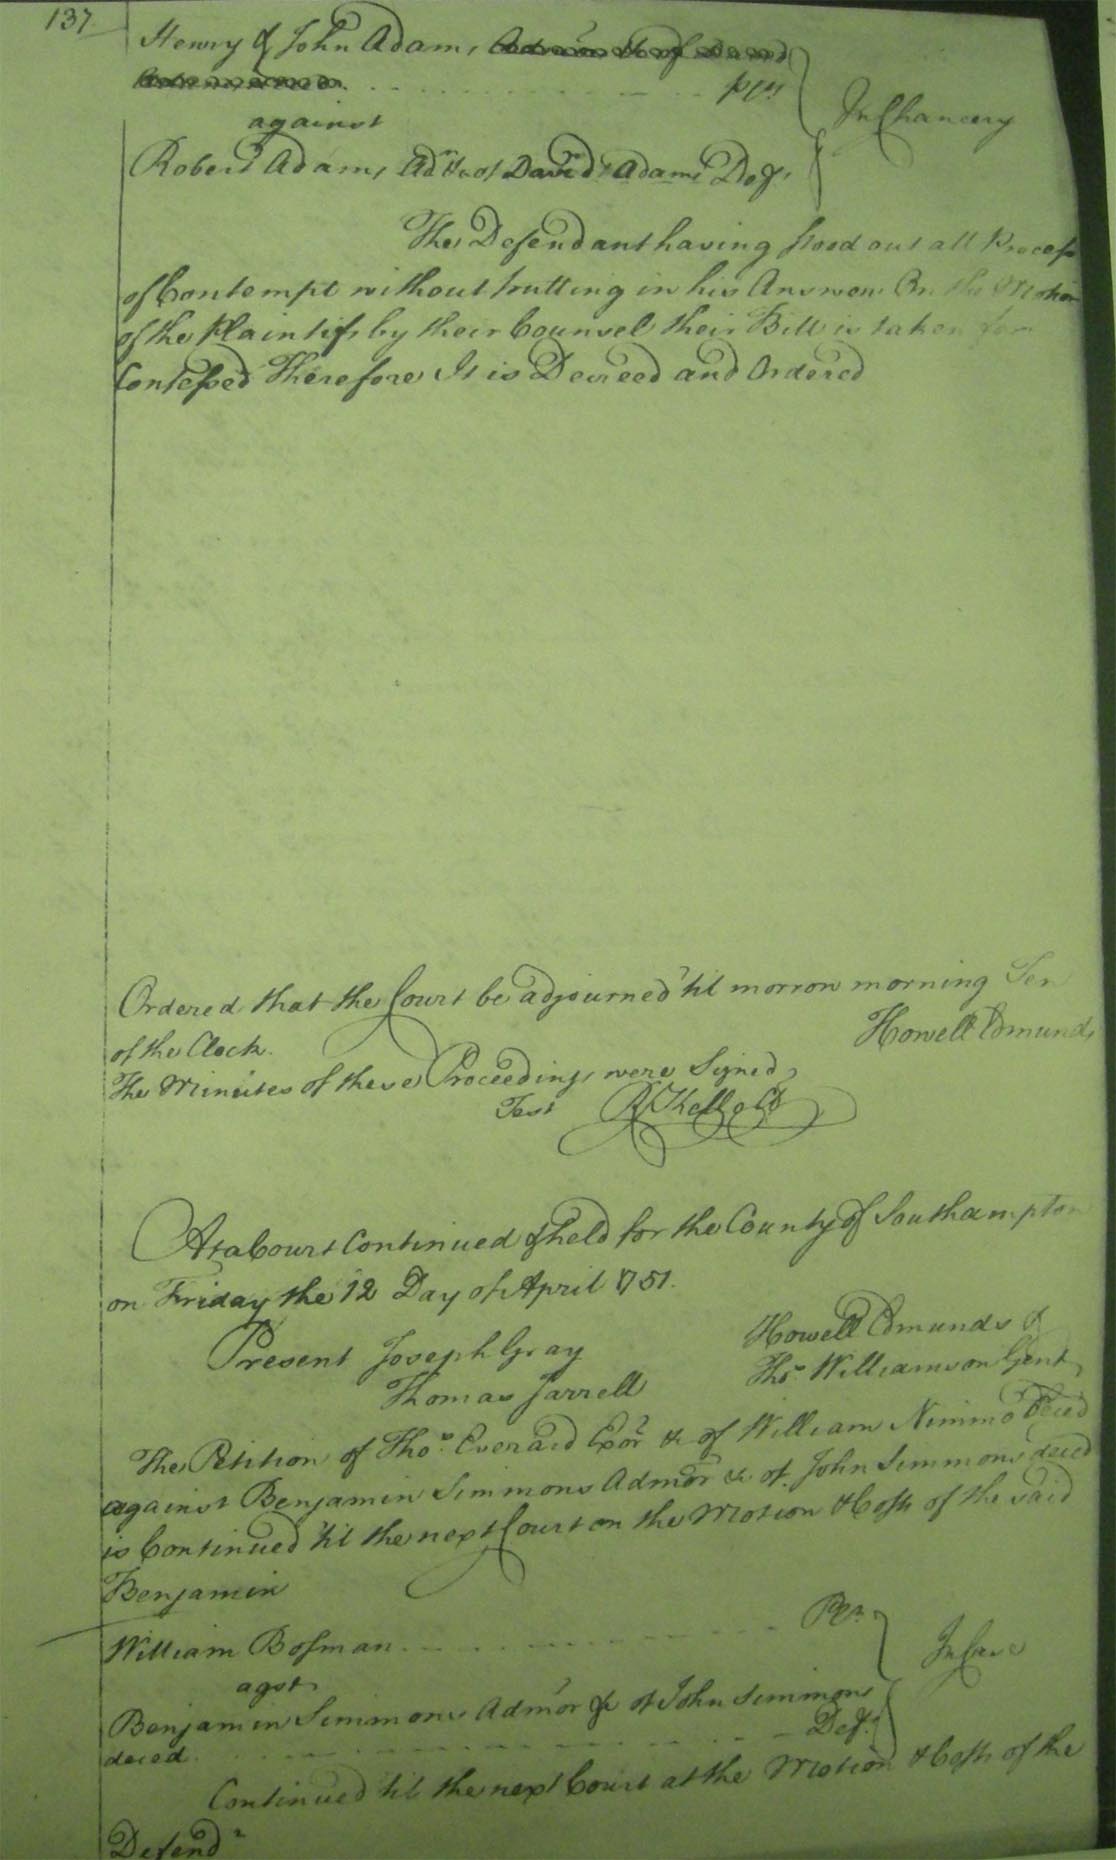 137
Henry & John Adams
Plts
against
In Chancery
Robert Adams Admr &c of David Adams Deft
The Defendant having stood out all Process
of Contempt without putting in his Answer On the Motion
of the Plaintifs by their Counsel their Bill is taken for
Confessed Therefore It is Decreed and Ordered
Ordered that the Court be adjourned 'til morrow morning Ten
of the Clock.
Howell Edmunds
The Minutes of these Proceedings were Signed
Test R Kello Ct
At a Court Continued & held for the County of Southampton
on Friday the 12 Day of April 1751.
Present Joseph Gray Howell Edmunds &
Thomas Jarrell Thos Williamson Gent
The Petition of Thos Everard Exor &c of William Nimmo deced
against Benjamin Simmons Admor &c of John Simmons deced
is Continued 'til the next Court on the Motion & Costs of the said
Benjamin
William Bosman Plt
agst
In Case
Benjamin Simmons Admor &c of John Simmons
deced Deft
Continued 'til the next Court at the Motion & Costs of the
Defendt